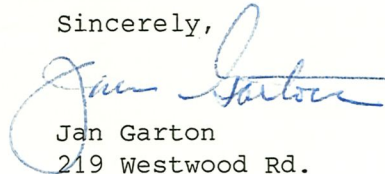 Sincerely,
Jan Garton
Jan Garton
219 Westwood Rd.